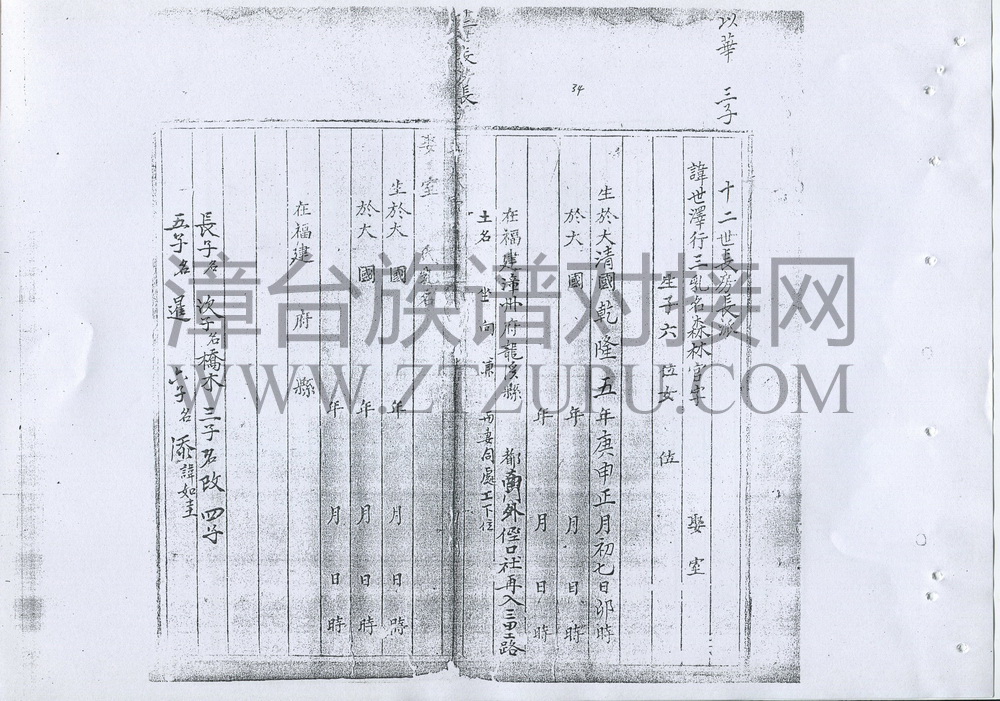 以華 三子
十二世長房長派
諱世澤行三乳名森林字 娶室
生子六位女 位
生於大清國乾隆五年庚申正月初七日卯時
於大 國 年 月 日 時
年 月 日 時
在福建漳州府龍溪縣 都南外徑口社再入三里路
土名 坐 向 兼 兩妻同處
34
娶室 氏乳名
生於大 國 年 月 日 時
於大 國 年 月 日 時
年 月 日 時
在福建 府 縣
長子名 次子名橋木 三子名改 四子
五子名暹 六子名添諱如圭
漳台族谱对接网
WWW.ZTZUPU.COM